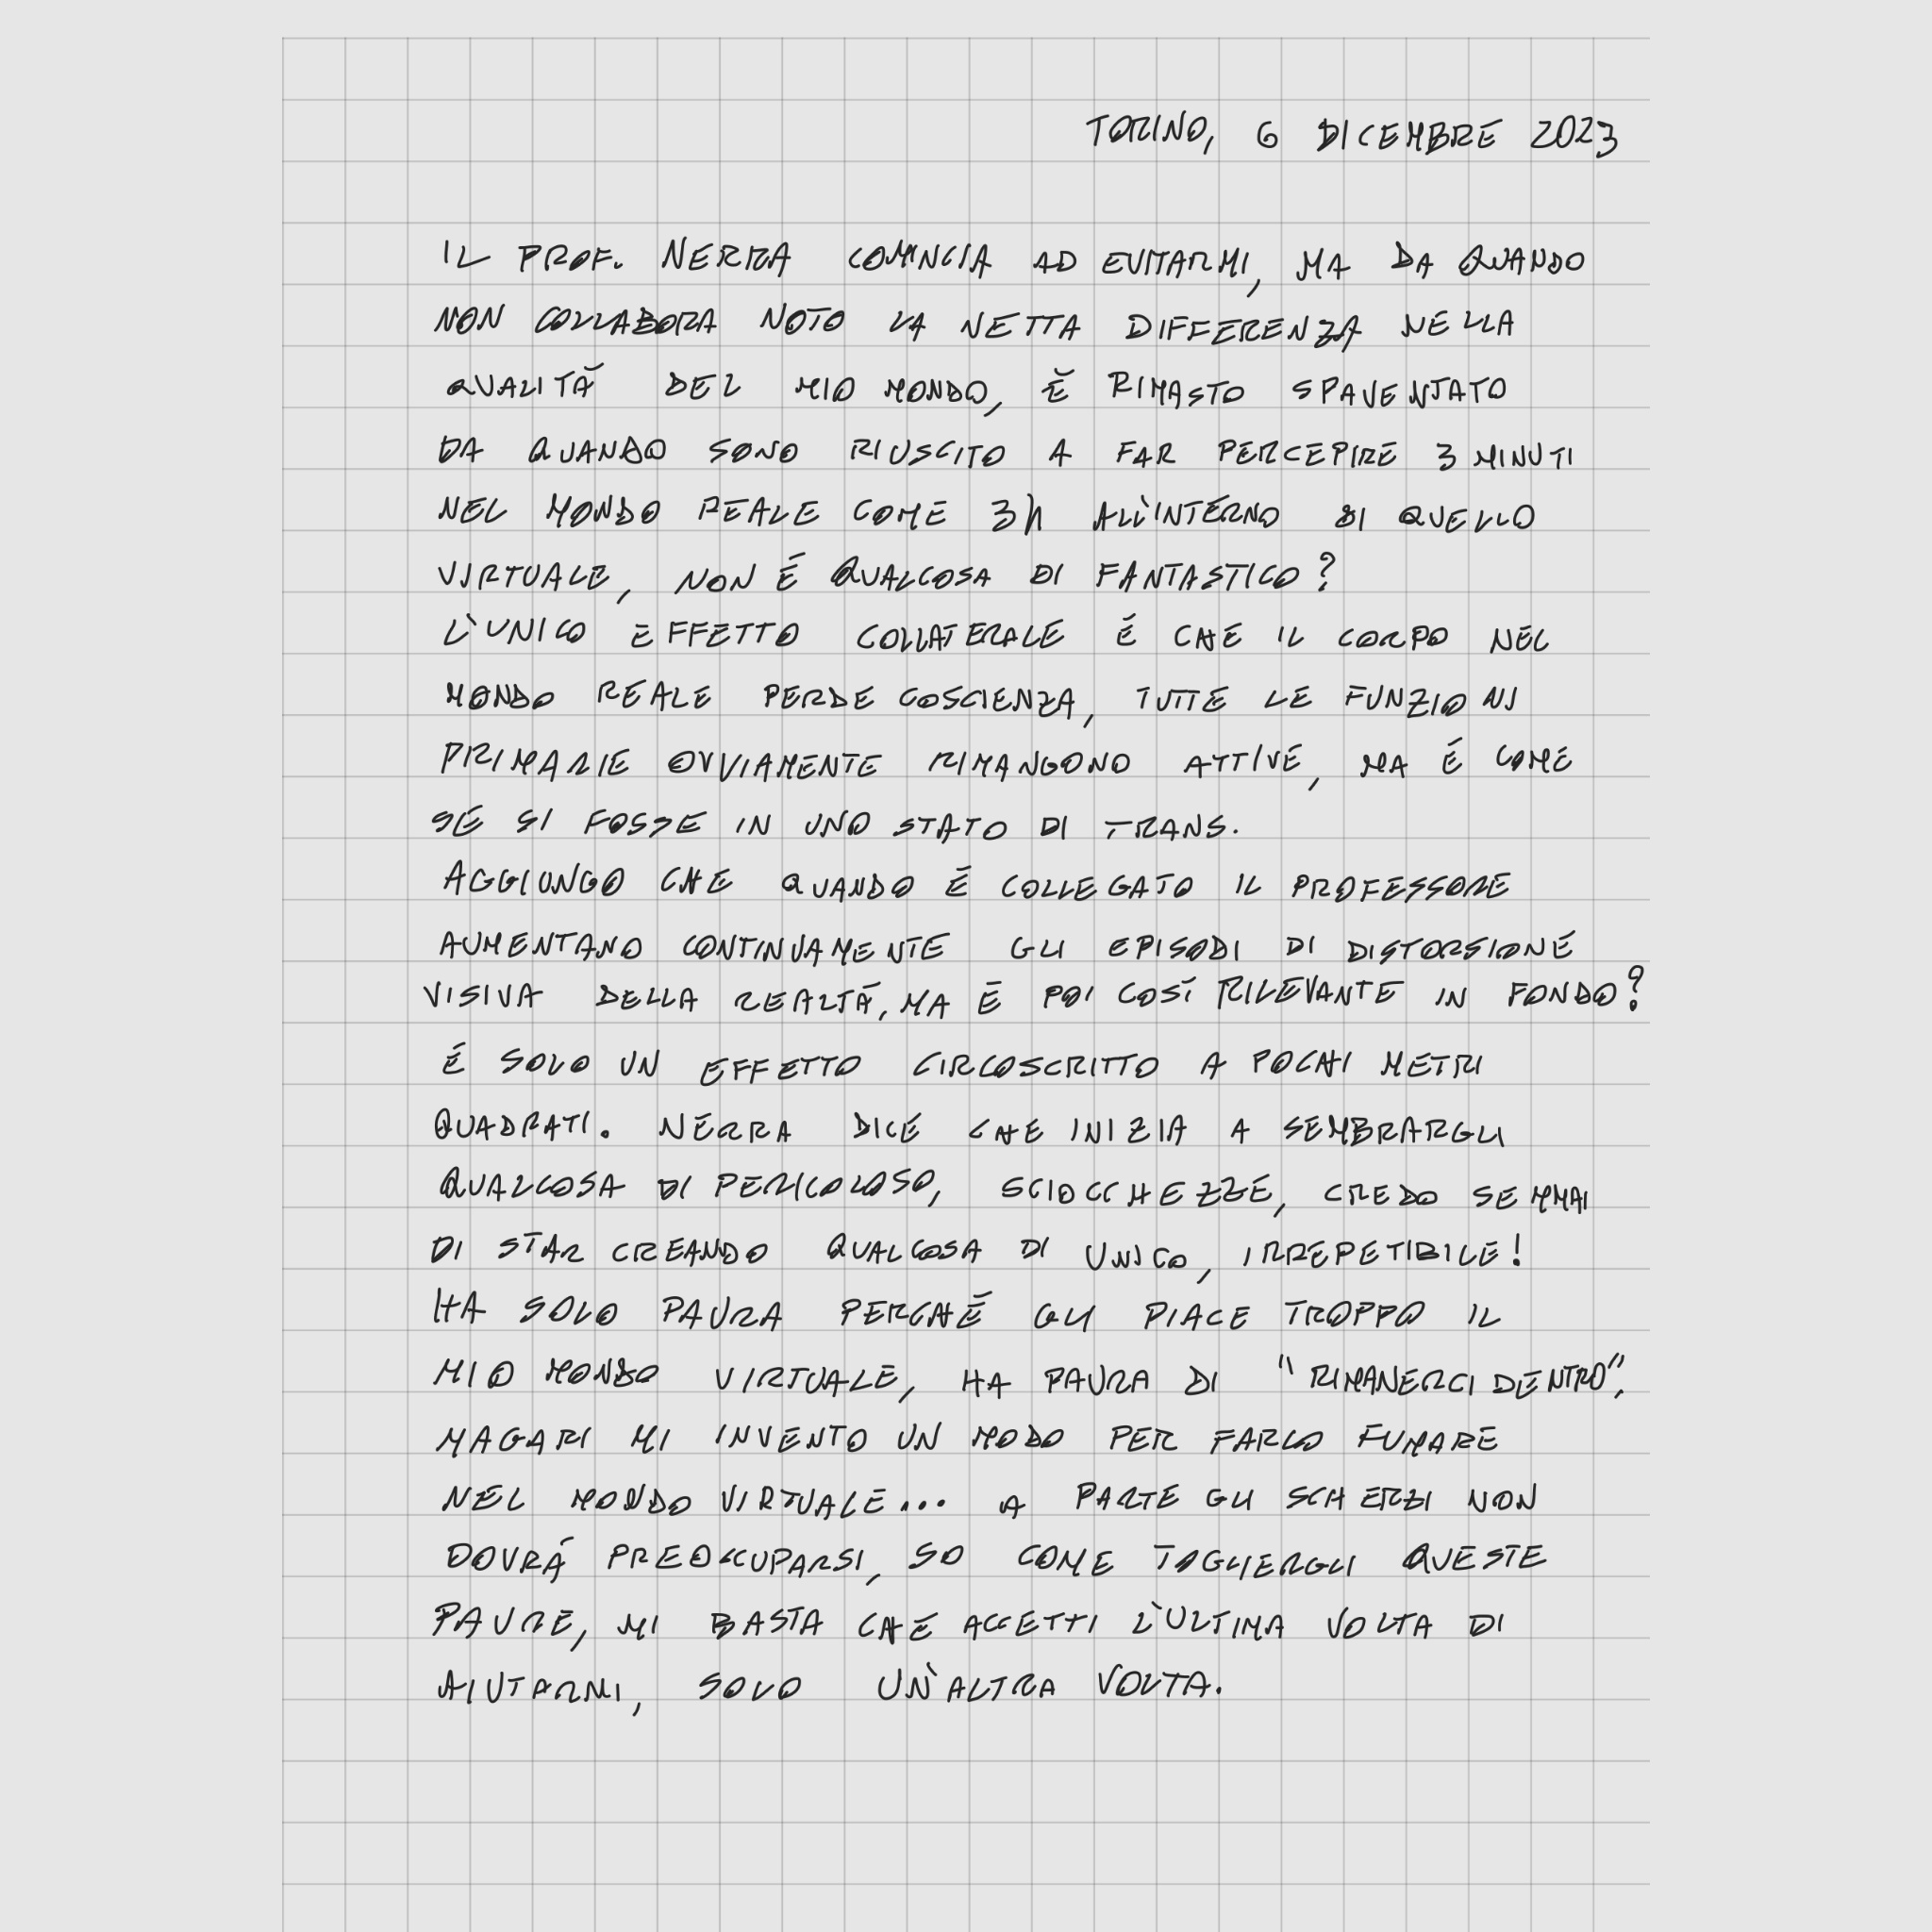 TORINO, 6 DICEMBRE 2023
IL PROF. NERRA COMINCIA AD EVITARMI, MA DA QUANDO
NON COLLABORA NOTO LA NETTA DIFFERENZA NELLA
QUALITÀ DEL MIO MONDO, È RIMASTO SPAVENTATO
DA QUANDO SONO RIUSCITO A FAR PERCEPIRE 3 MINUTI
NEL MONDO REALE COME 3h ALL'INTERNO DI QUELLO
VIRTUALE, NON É QUALCOSA DI FANTASTICO?
L'UNICO EFFETTO COLLATERALE É CHE IL CORPO NEL
MONDO REALE PERDE COSCIENZA, TUTTE LE FUNZIONI
PRIMARIE OVVIAMENTE RIMANGONO ATTIVE, MA É COME
SE SI FOSSE IN UNO STATO DI TRANS.
AGGIUNGO CHE QUANDO É COLLEGATO IL PROFESSORE
AUMENTANO CONTINUAMENTE GLI EPISODI DI DISTORSIONE
VISIVA DELLA REALTÁ, MA É POI COSÍ RILEVANTE IN FONDO?
É SOLO UN EFFETTO CIRCOSCRITTO A POCHI METRI
QUADRATI. NERRA DICE CHE INIZIA A SEMBRARGLI
QUALCOSA DI PERICOLOSO, SCIOCCHEZZE, CREDO SEMMAI
DI STAR CREANDO QUALCOSA DI UNICO, IRREPETIBILE!
HA SOLO PAURA PERCHÉ GLI PIACE TROPPO IL
MIO MONDO VIRTUALE, HA PAURA DI "RIMANERCI DENTRO".
MAGARI MI INVENTO UN MODO PER FARLO FUMARE
NEL MONDO VIRTUALE... A PARTE GLI SCHERZI NON
DOVRÁ PREOCCUPARSI, SO COME TOGLIERGLI QUESTE
PAURE, MI BASTA CHE ACCETTI L'ULTIMA VOLTA DI
AIUTARMI, SOLO UN'ALTRA VOLTA.